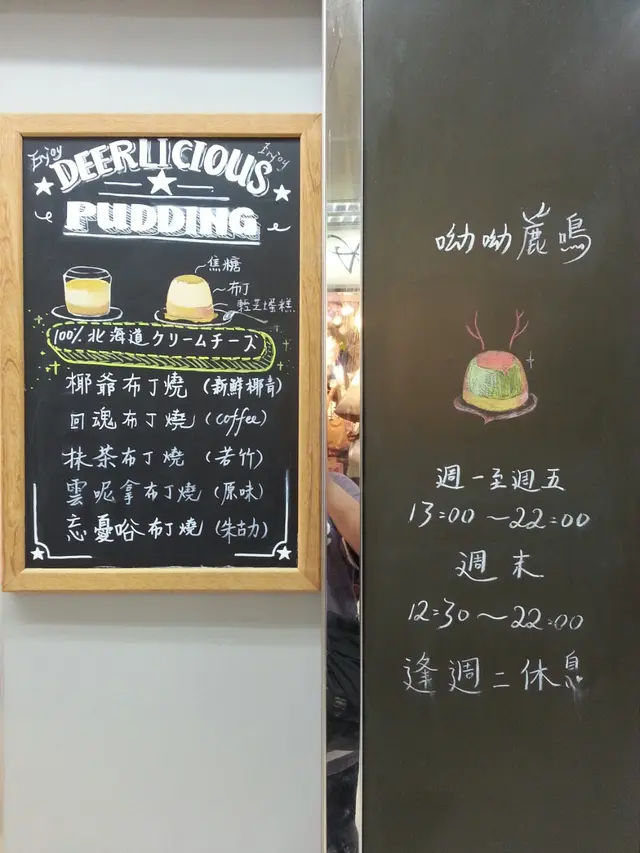 Enjoy
Enjoy
DEERLICIOUS
PUDDING
焦糖
布丁
輕芝士蛋糕
100% 北海道クリームチーズ
椰爺布丁燒 (新鮮椰青)
回魂布丁燒 (coffee)
抹茶布丁燒 (若竹)
雲呢拿布丁燒 (原味)
忘憂哈布丁燒 (朱古力)
呦呦鹿鳴
週一至週五
13:00 ~ 22:00
週末
12:30 ~ 22:00
逢週二休息